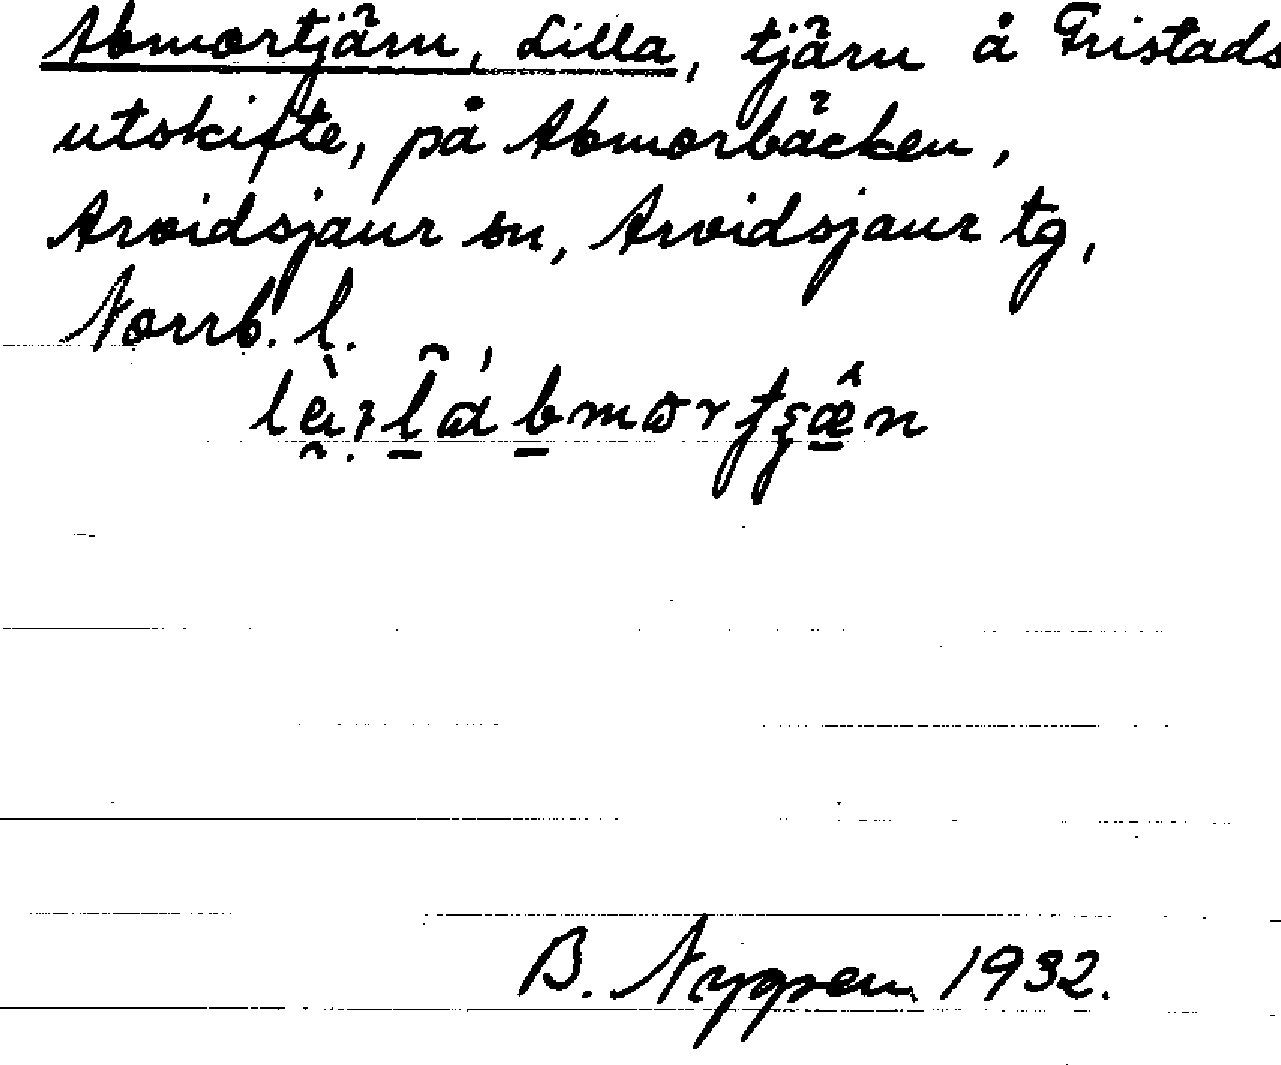 Abmortjärn, Lilla, tjärn å Fristads
utskifte, på Abmorbäcken,
Arvidsjaur sn, Arvidsjaur tg,
Norrb. l.
B. Nygren 1932.